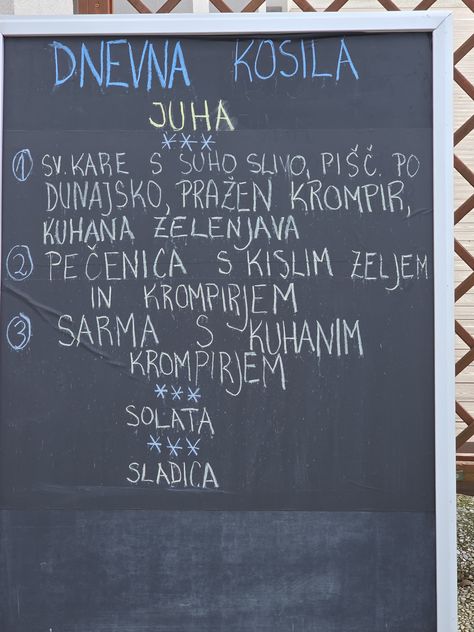 DNEVNA KOSILA
JUHA
***
1 SV. KARE S SUHO SLIVO, PIŠČ. PO
DUNAJSKO, PRAŽEN KROMPIR,
KUHANA ZELENJAVA
2 PEČENICA S KISLIM ZELJEM
IN KROMPIRJEM
3 SARMA S KUHANIM
KROMPIRJEM
***
SOLATA
***
SLADICA